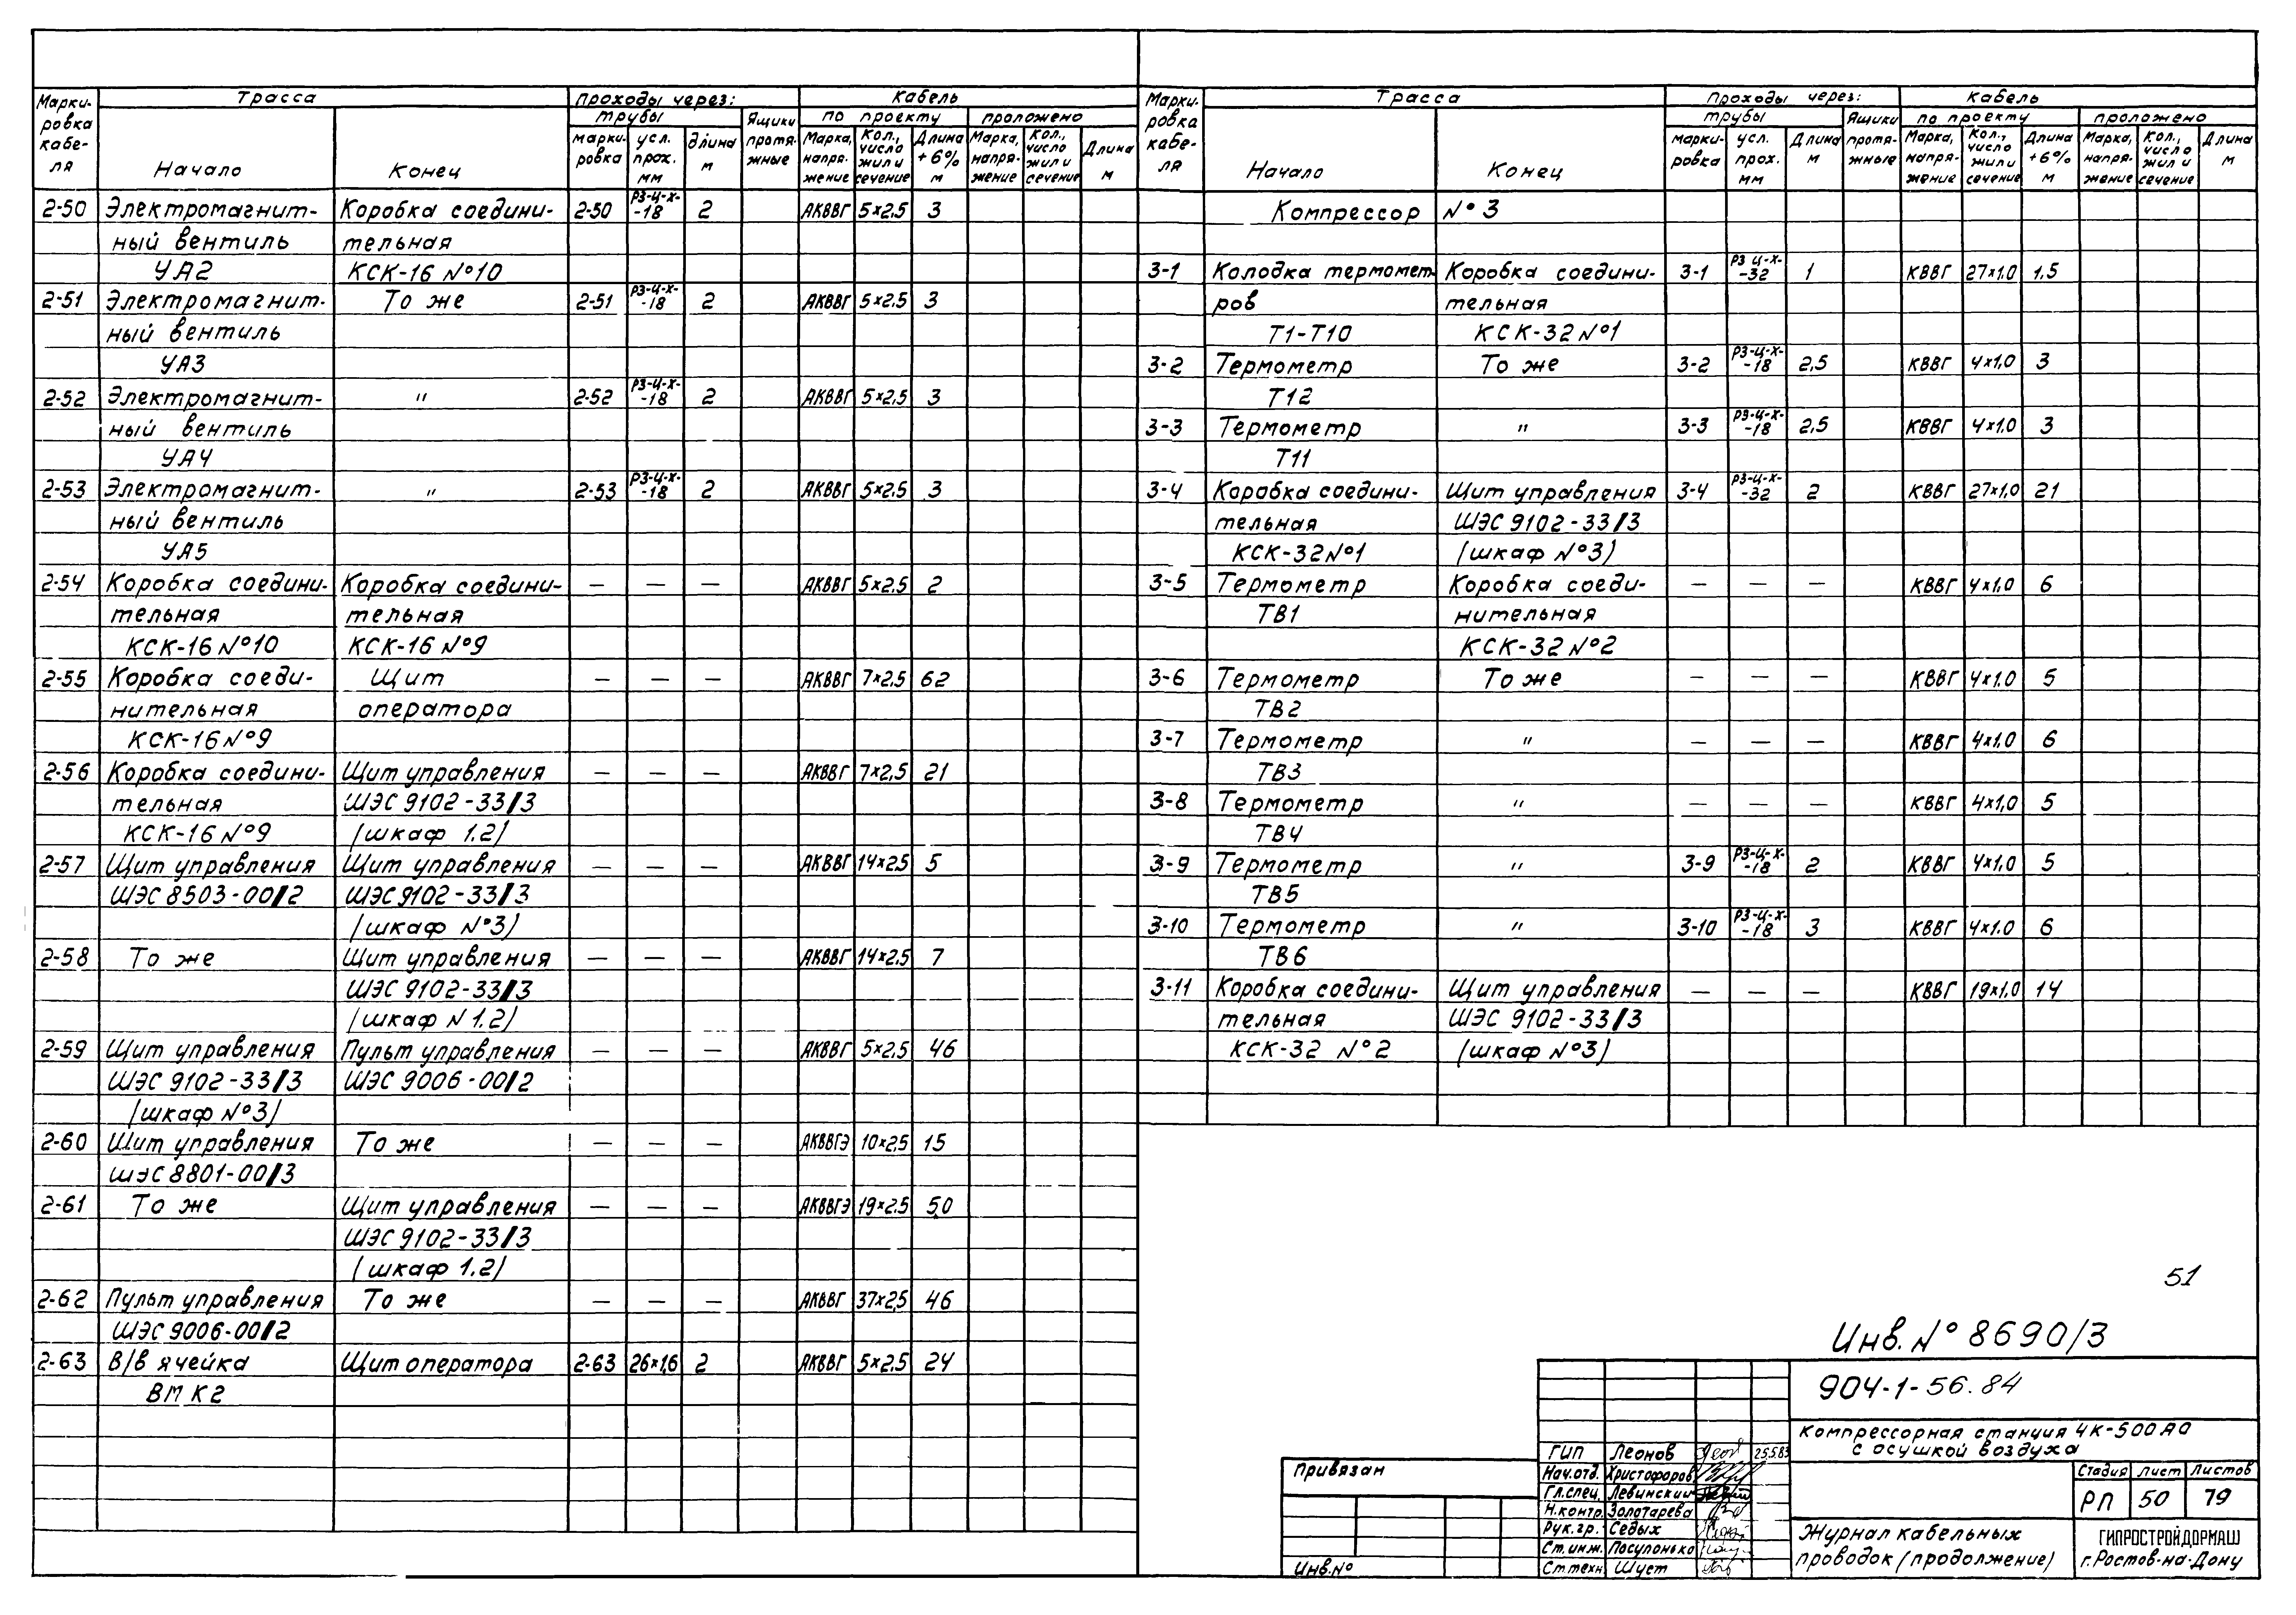 Марки-ровка кабе-ля | Трасса | Проходы через: | Кабель
трубы | Ящики протя-жные | по проекту | проложено
Начало | Конец | марки-ровка | усл. прох. мм | длина м | Марка, напря-жение | Кол., число жил и сечение | Длина +6% м | Марка, напря-жение | Кол., число жил и сечение | Длина м
2-50 | Электромагнит- | Коробка соедини- | 2-50 | РЗ-Ц-Х--18 | 2 | АКВВГ | 5×2,5 | 3
ный вентиль | тельная
УА2 | КСК-16 №10
2-51 | Электромагнит- | То же | 2-51 | РЗ-Ц-Х--18 | 2 | АКВВГ | 5×2,5 | 3
ный вентиль
УА3
2-52 | Электромагнит- | " | 2-52 | РЗ-Ц-Х--18 | 2 | АКВВГ | 5×2,5 | 3
ный вентиль
УА4
2-53 | Электромагнит- | " | 2-53 | РЗ-Ц-Х--18 | 2 | АКВВГ | 5×2,5 | 3
ный вентиль
УА5
2-54 | Коробка соедини- | Коробка соедини- | — | — | — | АКВВГ | 5×2,5 | 2
тельная | тельная
КСК-16 №10 | КСК-16 №9
2-55 | Коробка соеди- | Щит | — | — | — | АКВВГ | 7×2,5 | 62
нительная | оператора
КСК-16 №9
2-56 | Коробка соедини- | Щит управления | — | — | — | АКВВГ | 7×2,5 | 21
тельная | ШЭС 9102-33/3
КСК-16 №9 | (шкаф 1.2)
2-57 | Щит управления | Щит управления | — | — | — | АКВВГ | 14×2,5 | 5
ШЭС 8503-00/2 | ШЭС 9102-33/3
(шкаф №3)
2-58 | То же | Щит управления | — | — | — | АКВВГ | 14×2,5 | 7
ШЭС 9102-33/3
(шкаф N 1.2)
2-59 | Щит управления | Пульт управления | — | — | — | АКВВГ | 5×2,5 | 46
ШЭС 9102-33/3 | ШЭС 9006-00/2
(шкаф №3)
2-60 | Щит управления | То же | — | — | — | АКВВГЭ | 10×2,5 | 15
ШЭС 8801-00/3
2-61 | То же | Щит управления | — | — | — | АКВВГЭ | 19×2,5 | 50
ШЭС 9102-33/3
(шкаф 1.2)
2-62 | Пульт управления | То же | — | — | — | АКВВГ | 37×2,5 | 46
ШЭС 9006-00/2
2-63 | В/в ячейка | Щит оператора | 2-63 | 26×1,6 | 2 | АКВВГ | 5×2,5 | 24
ВМ К2
Марки-ровка кабе-ля | Трасса | Проходы через: | Кабель
трубы | Ящики протя-жные | по проекту | проложено
Начало | Конец | марки-ровка | усл. прох. мм | Длина м | Марка, напря-жение | Кол., число жил и сечение | Длина +6% м | Марка, напря-жение | Кол., число жил и сечение | Длина м
Компрессор | №3
3-1 | Колодка термомет- | Коробка соедини- | 3-1 | РЗ Ц-Х--32 | 1 | КВВГ | 27×1,0 | 1.5
ров | тельная
Т1-Т10 | КСК-32 №1
3-2 | Термометр | То же | 3-2 | РЗ-Ц-Х--18 | 2,5 | КВВГ | 4×1,0 | 3
Т12
3-3 | Термометр | " | 3-3 | РЗ-Ц-Х--18 | 2,5 | КВВГ | 4×1,0 | 3
Т11
3-4 | Коробка соедини- | Щит управления | 3-4 | РЗ-Ц-Х--32 | 2 | КВВГ | 27×1,0 | 21
тельная | ШЭС 9102-33/3
КСК-32 №1 | (шкаф №3)
3-5 | Термометр | Коробка соеди- | — | — | — | КВВГ | 4×1,0 | 6
ТВ1 | нительная
КСК-32 №2
3-6 | Термометр | То же | — | — | — | КВВГ | 4×1,0 | 5
ТВ2
3-7 | Термометр | " | — | — | — | КВВГ | 4×1,0 | 6
ТВ3
3-8 | Термометр | " | — | — | — | КВВГ | 4×1,0 | 5
ТВ4
3-9 | Термометр | " | 3-9 | РЗ-Ц-Х--18 | 2 | КВВГ | 4×1,0 | 5
ТВ5
3-10 | Термометр | " | 3-10 | РЗ-Ц-Х--18 | 3 | КВВГ | 4×1,0 | 6
ТВ6
3-11 | Коробка соедини- | Щит управления | — | — | — | КВВГ | 19×1,0 | 14
тельная | ШЭС 9102-33/3
КСК-32 №2 | (шкаф №3)
51
Инв. № 8690/3
904-1-56.84
Компрессорная станция 4К-500АО
с осушкой воздуха
ГИП | Леонов | 25.5.83
Нач.отд. | Христофоров
Гл.спец. | Левинский
Н.контр. | Золотарева
Рук.гр. | Седых
Ст.инж. | Посулонько
Ст.техн. | Шуст
Привязан
Инв.№
Стадия | Лист | Листов
РП | 50 | 79
Журнал кабельных
проводок (продолжение)
ГИПРОСТРОЙДОРМАШ
г. Ростов-на-Дону